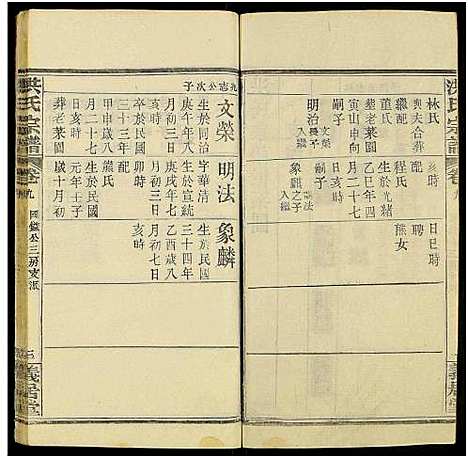 洪氏宗譜
卷九
林氏
與夫合葬
繼配
董氏
葬老菜園
寅山申向
嗣子
明治
入繼
亥時
配
程氏
生於光緒
乙巳年四
月二十七
日亥時
嗣子
象麒之子
入繼
日巳時
聘
熊女
九志公次子
文榮
生於同治
庚午年八
月初三日
卒於民國
三十三年
二月十八
日申時
葬老菜園
明法
字華清
生於宣統
庚戌年七
月初三日
卯時
配
熊氏
生於民國
元年壬子
歲十月初
象麟
生於民國
三十四年
乙酉歲八
月初七日
亥時
洪氏宗譜
卷九
國鎰公三房支派
義居堂
義居堂